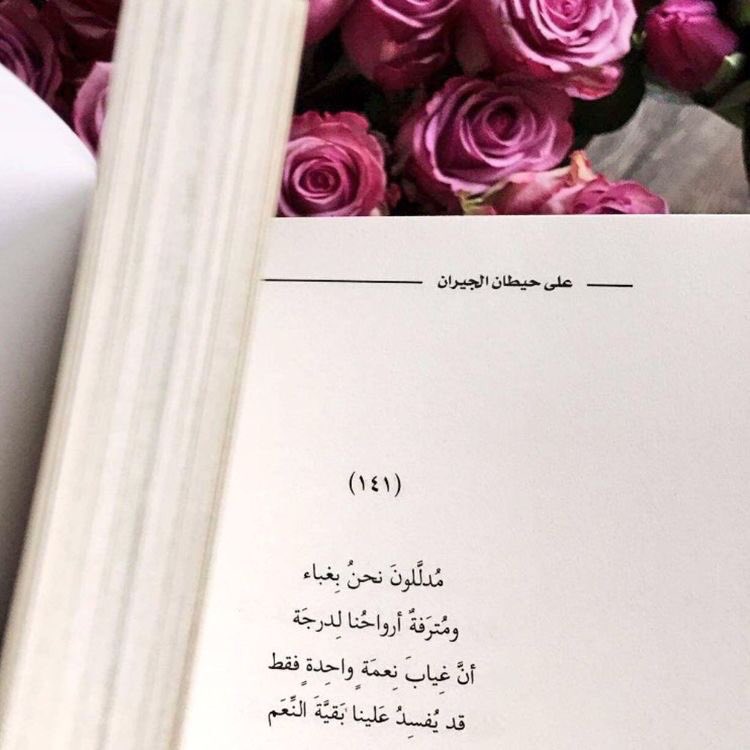 على حيطان الجيران
(١٤١)
مُدلَّلونَ نحنُ بِغباء
ومُترَفةٌ أرواحُنا لِدرجَة
أنَّ غِيابَ نِعمَةٍ واحِدةٍ فقط
قد يُفسِدُ عَلينا بَقيَّةَ النِّعَم